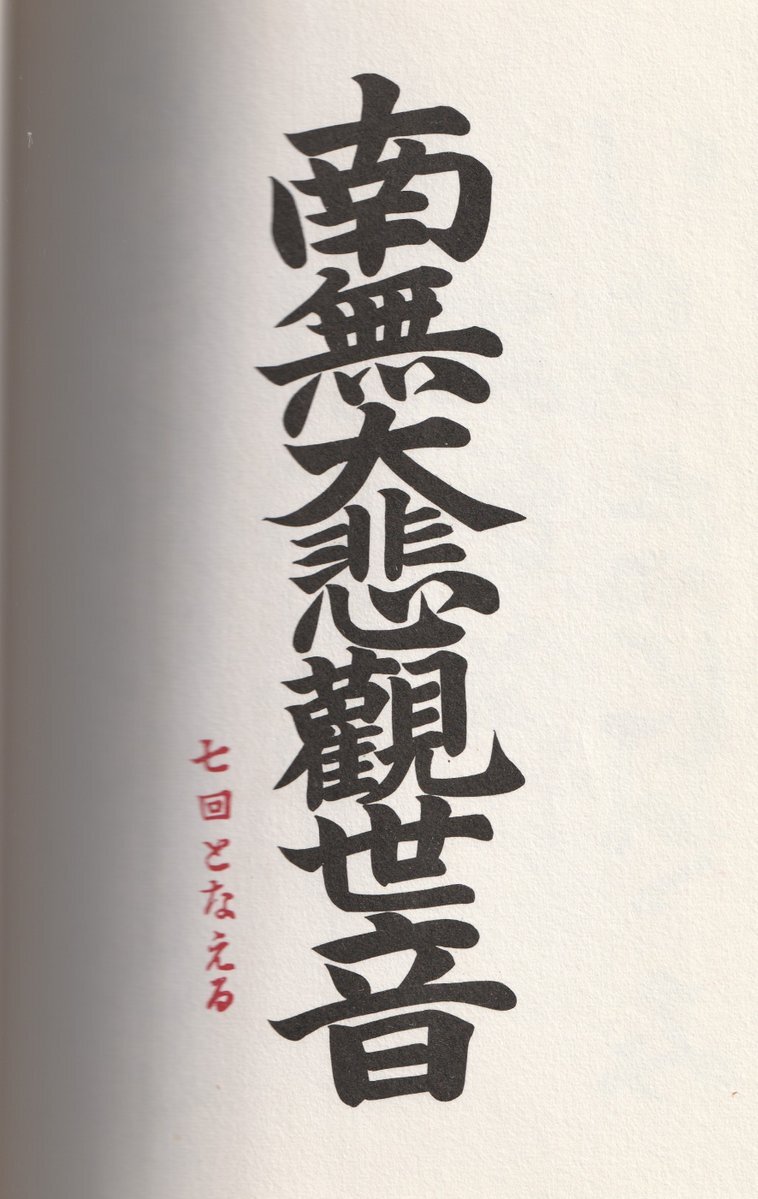 南無大悲觀世音
七回となえる